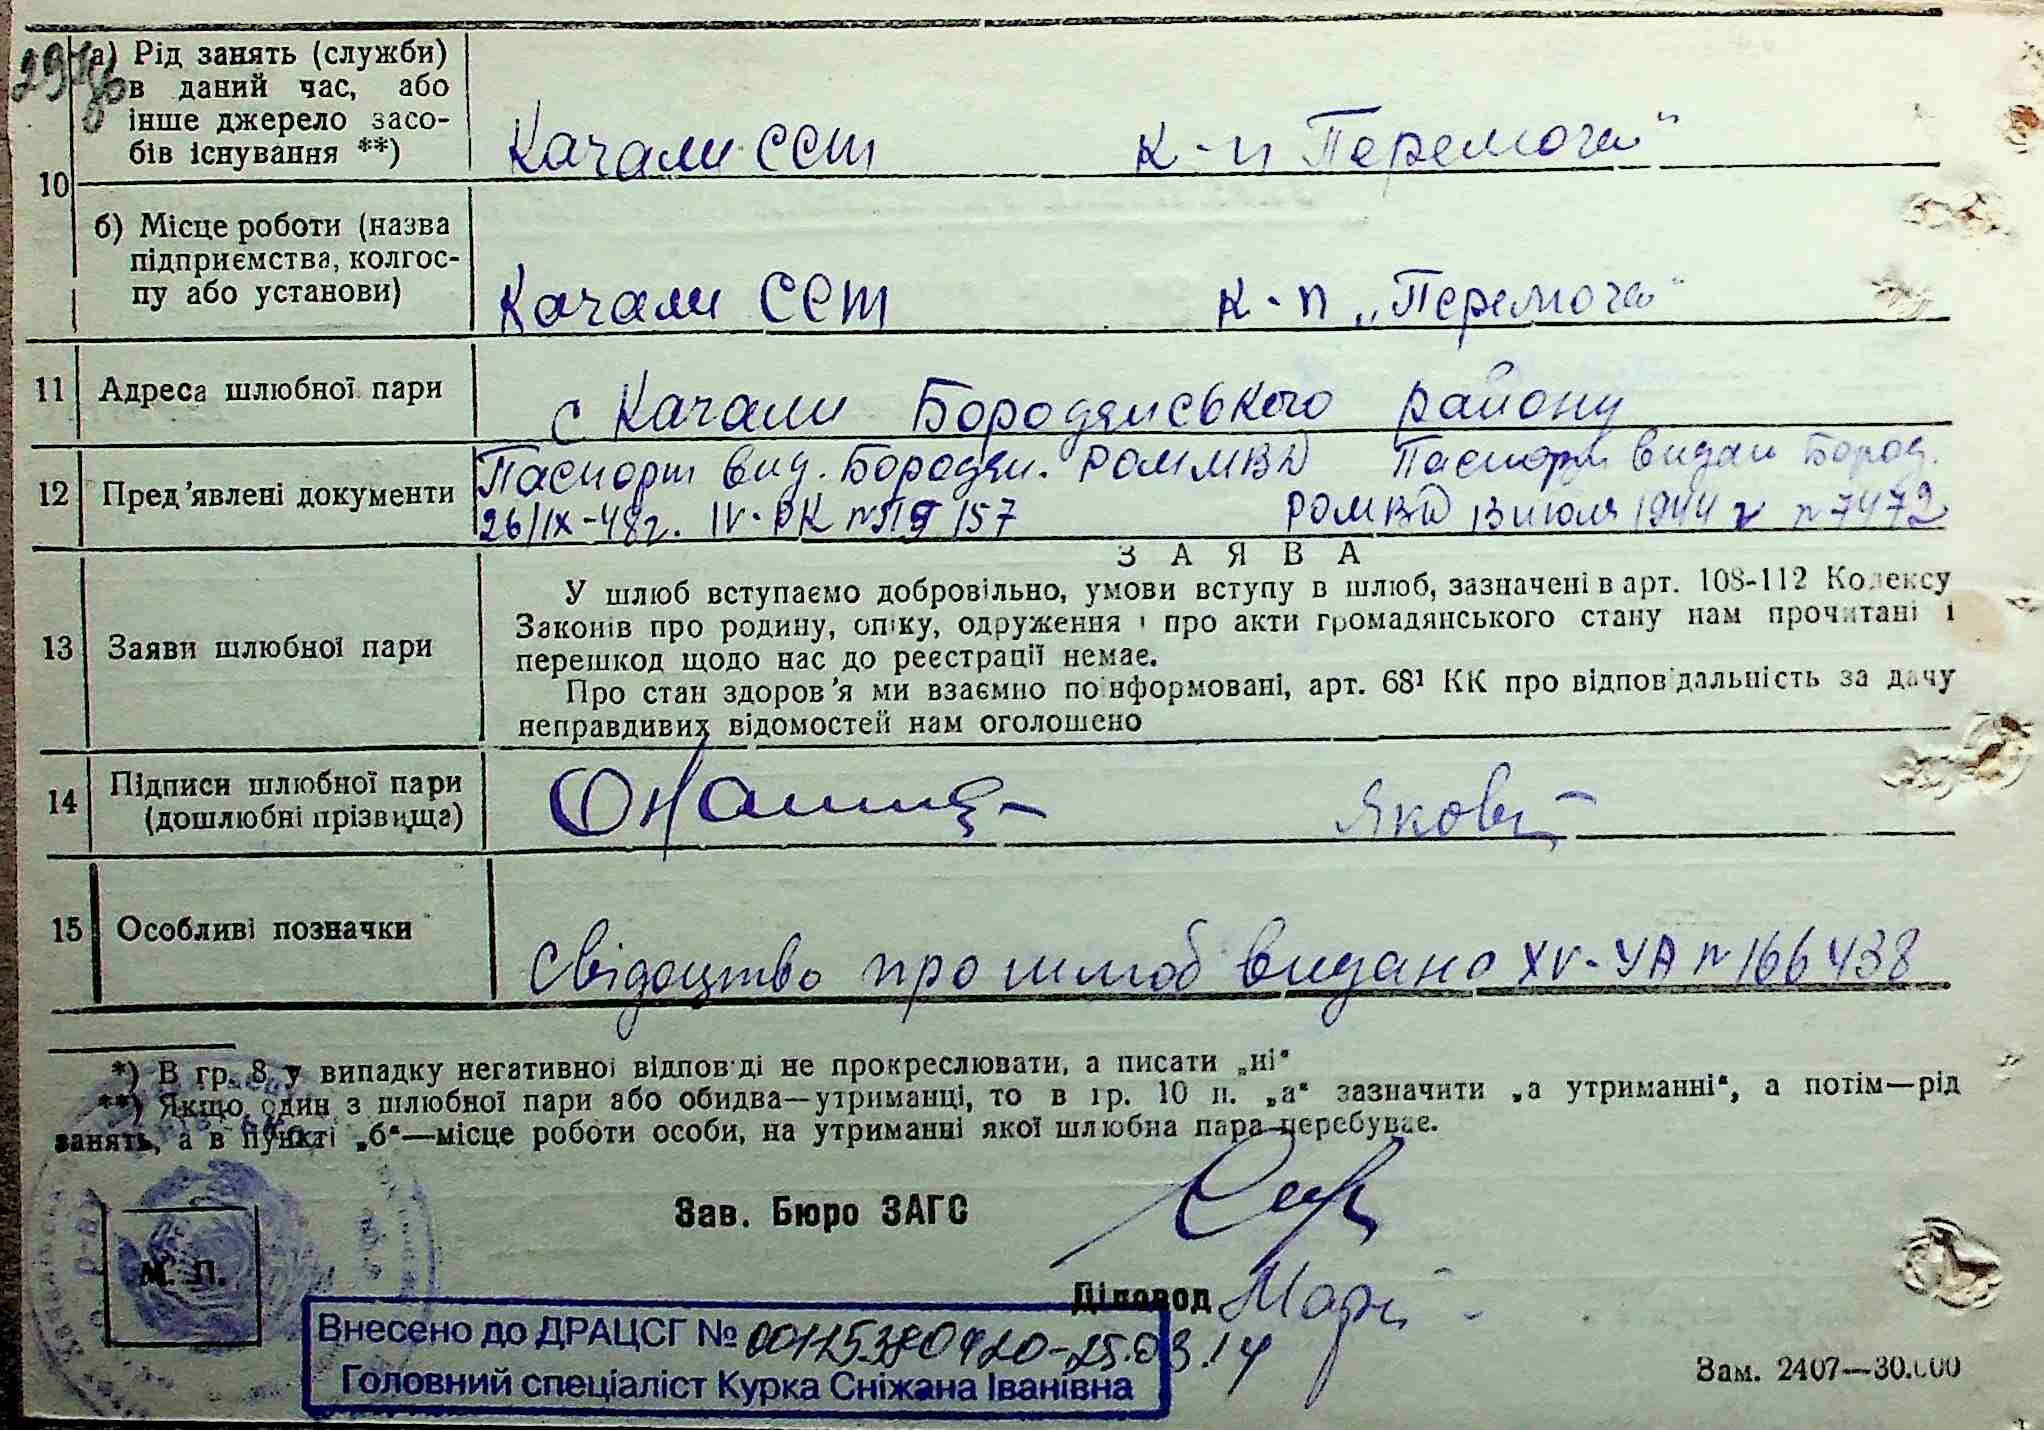 а) Рід занять (служби)
в даний час, або
інше джерело засо-
бів існування **)
Качали ССТ к-п Перемога"
10
б) Місце роботи (назва
підприємства, колгос-
пу або установи)
Качали ССТ к-п „Перемога"
11 Адреса шлюбної пари
с Качали Бородянського району
12 Пред'явлені документи
Паспорт вид. Бородян. РОМ МВД Паспорт видан Бород.
26/IX-48г. IV-РК № 157 РОМВД 13 июля 1944 г №7472
З А Я В А
13 Заяви шлюбної пари
У шлюб вступаємо добровільно, умови вступу в шлюб, зазначені в арт. 108-112 Кодексу
Законів про родину, опіку, одруження і про акти громадянського стану нам прочитані і
перешкод щодо нас до реєстрації немає.
Про стан здоров'я ми взаємно поінформовані, арт. 68¹ КК про відповідальність за дачу
неправдивих відомостей нам оголошено
14 Підписи шлюбної пари
(дошлюбні прізвища)
15 Особливі позначки
Свідоцтво про шлюб видано XV-УА № 166438
*) В гр. 8 у випадку негативної відповіді не прокреслювати, а писати „ні“
**) Якщо один з шлюбної пари або обидва—утриманці, то в гр. 10 п. „а“ зазначити „а утриманні“, а потім—рід
занять, а в пункті „б“—місце роботи особи, на утриманні якої шлюбна пара перебуває.
Зав. Бюро ЗАГС
М. П.
Діловод
Внесено до ДРАЦСГ № 00125380920-25.03.14
Головний спеціаліст Курка Сніжана Іванівна
Зам. 2407—30.000